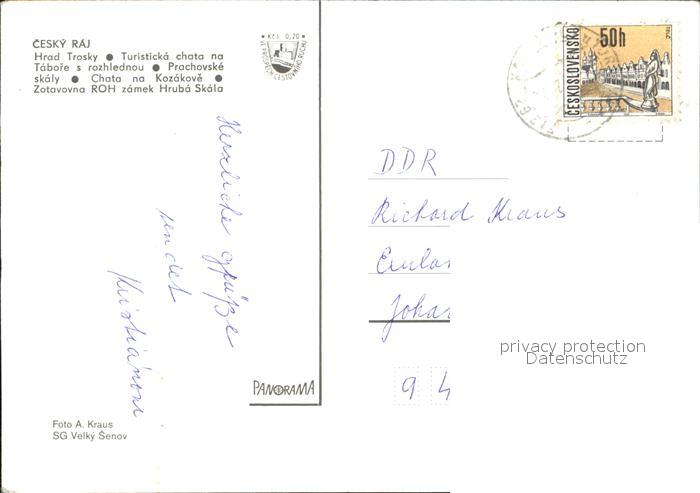 ČESKÝ RÁJ
Hrad Trosky ● Turistická chata na
Táboře s rozhlednou ● Prachovské
skály ● Chata na Kozákově ●
Zotavovna ROH zámek Hrubá Skála
Kčs 0,20
50h
ČESKOSLOVENSKO
TELČ
Herzliche Grüße
sendet
DDR
Richard Kraus
Johan
9 4
privacy protection
Datenschutz
PANORAMA
Foto A. Kraus
SG Velký Šenov